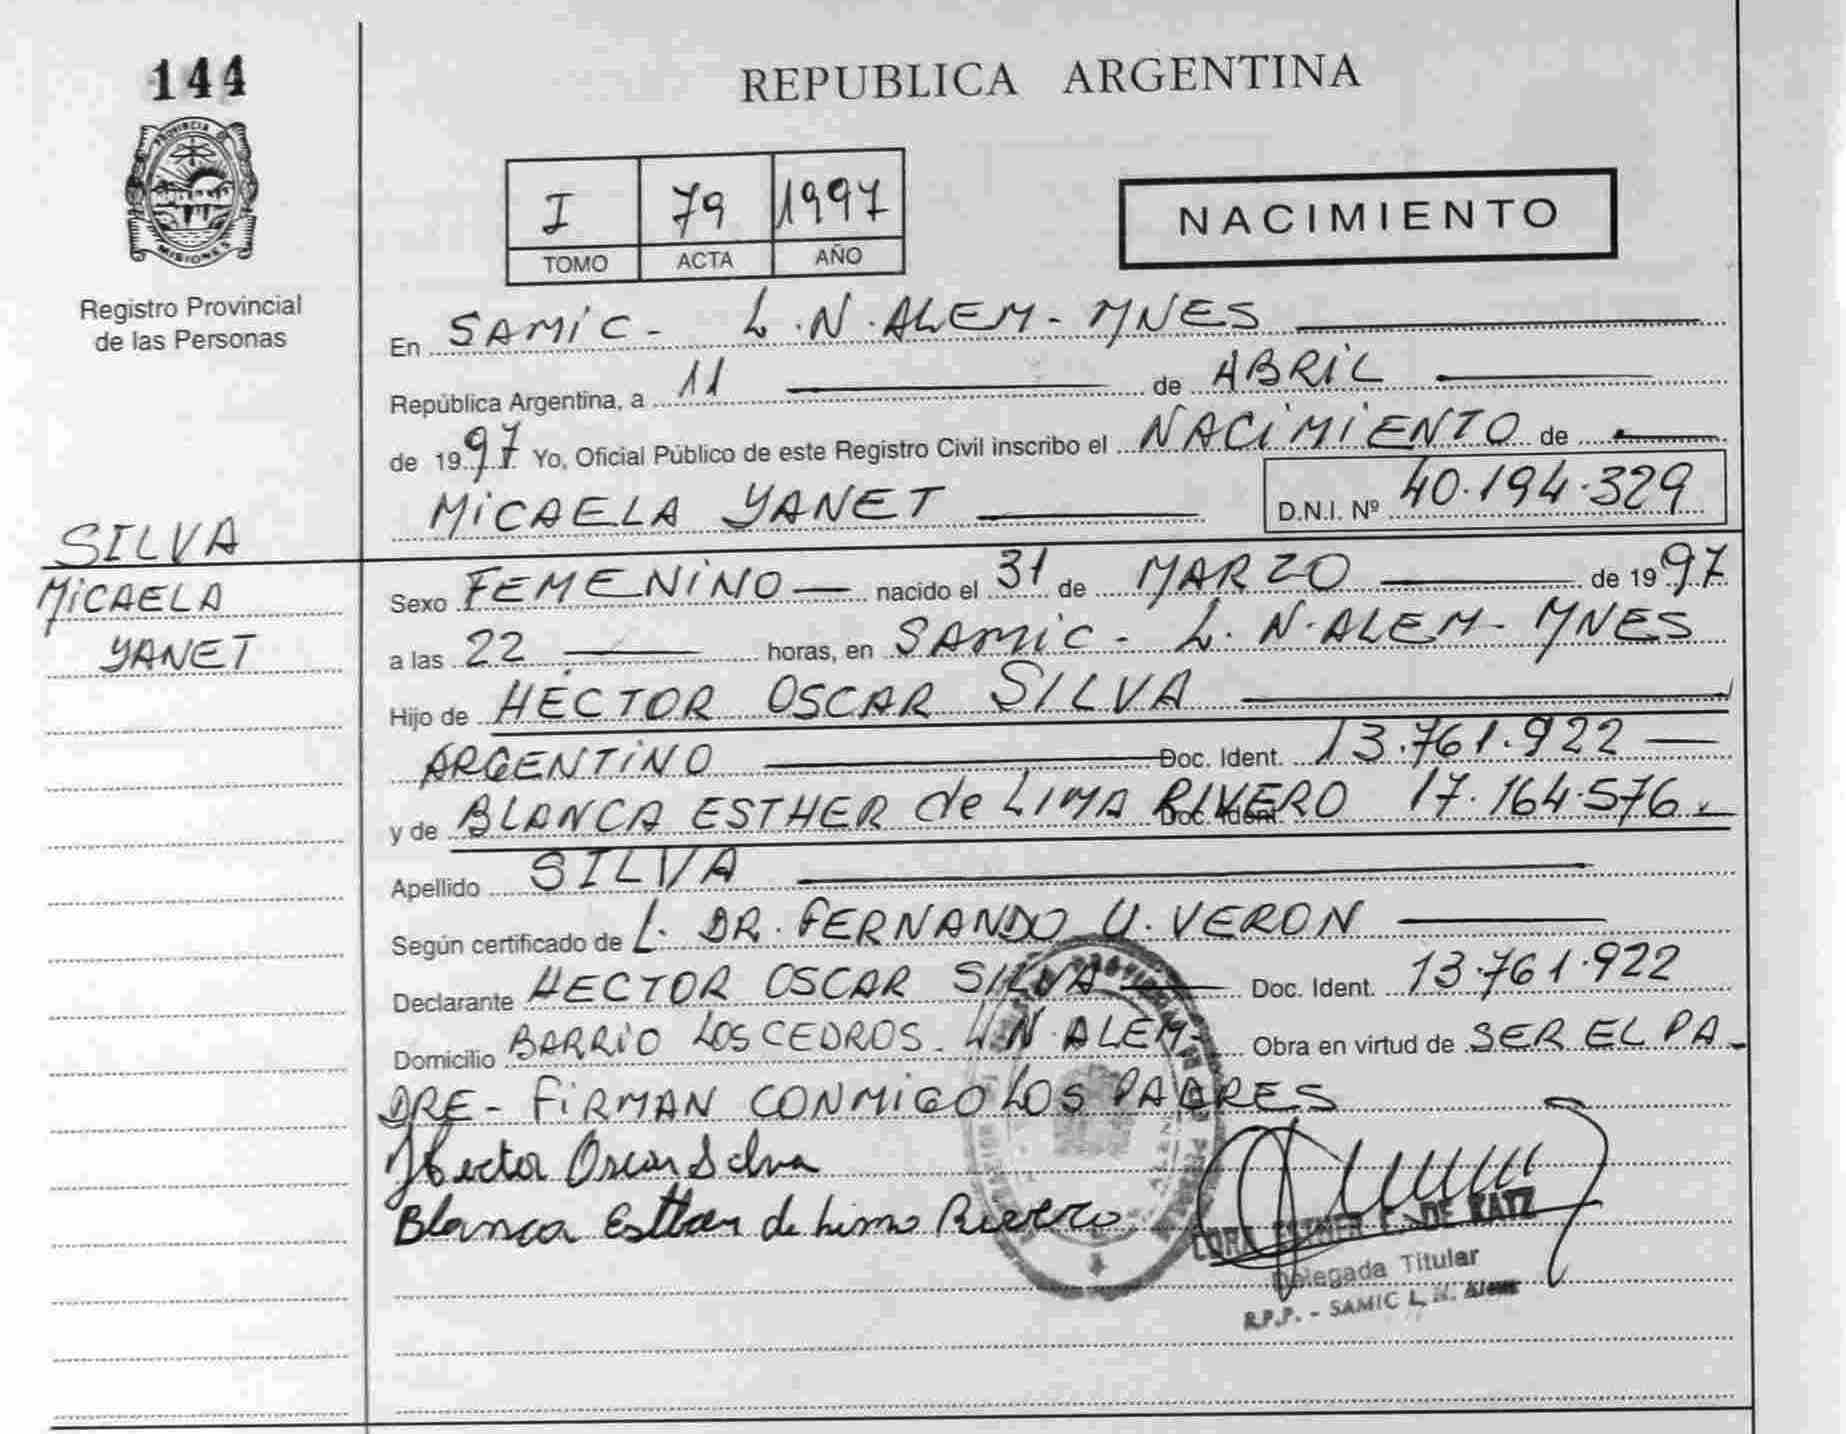 144
REPUBLICA ARGENTINA
PROVINCIA DE
MISIONES
Registro Provincial
de las Personas
I 79 1997
TOMO ACTA AÑO
NACIMIENTO
En SAMiC - L.N.ALEM - MNES
República Argentina, a 11 de ABRiL
de 1997 Yo, Oficial Público de este Registro Civil inscribo el NACiMiENTO de
MiCAELA YANET D.N.I. Nº 40.194.329
SILVA
MiCAELA
YANET
Sexo FEMENiNO nacido el 31 de MARZO de 1997
a las 22 horas, en SAMiC - L. N. ALEM - MNES
Hijo de HECTOR OSCAR SILVA
ARGENTiNO Doc. Ident. 13.761.922
y de BLANCA ESTHER de LIMA RIVERO Doc. Ident. 17.164.576
Apellido SILVA
Según certificado de L. DR. FERNANDO U. VERON
Declarante HECTOR OSCAR SILVA Doc. Ident. 13.761.922
Domicilio BARRiO LOS CEDROS. L.N. ALEM - Obra en virtud de SER EL PA-
DRE - FiRMAN CONMiGO LOS PADRES
Hector Oscar Silva
Blanca Esther de Lima Rivero
ESTHER F. DE KATZ
Delegada Titular
R.P.P. - SAMIC L. N. Alem